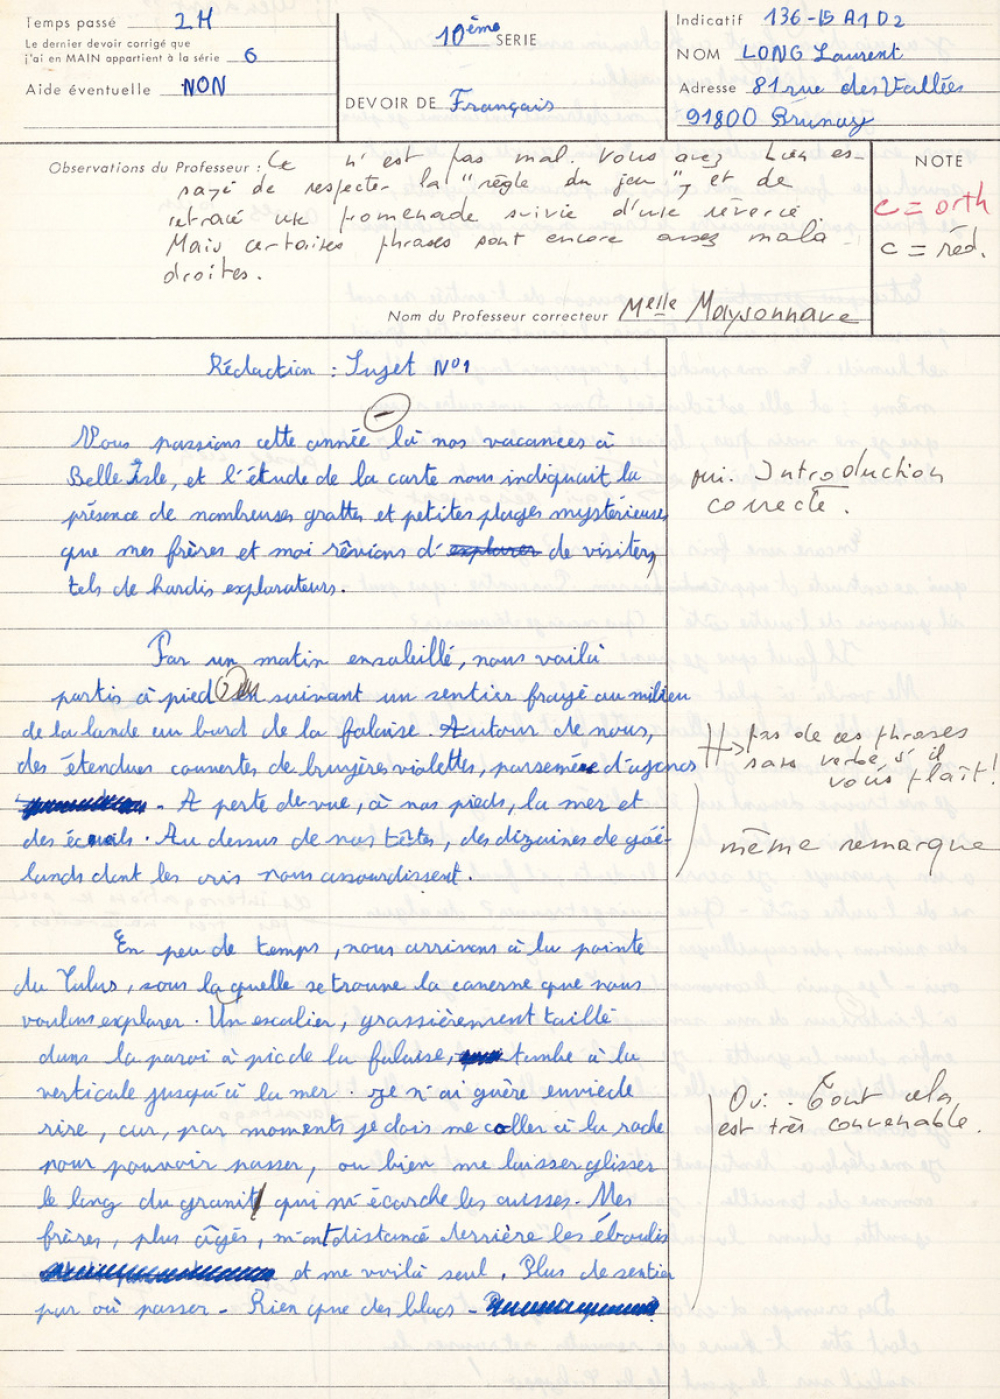 Temps passé 2 H
Le dernier devoir corrigé que
j'ai en MAIN appartient à la série 6
Aide éventuelle NON
10ème SERIE
DEVOIR DE Français
Indicatif 136-15 A1D2
NOM LONG Laurent
Adresse 81 rue des Vallées
91800 Brunoy
Observations du Professeur : Ce n'est pas mal. Vous avez bien es-
sayé de respecter la "règle du jeu", et de
retracé une promenade suivie d'une rêverie.
Mais certaines phrases sont encore assez mala-
droites.
Nom du Professeur correcteur Melle Maysonnave
NOTE
C = orth
C = réd.
Rédaction : Sujet N°1
Nous passions cette année là nos vacances à
Belle Isle, et l'étude de la carte nous indiquait la
présence de nombreuses grottes et petites plages mystérieuses
que mes frères et moi rêvions d'explorer de visiter,
tels de hardis explorateurs.
oui. Introduction
correcte.
Par un matin ensoleillé, nous voilà
partis à pied en suivant un sentier frayé au milieu
de la lande au bord de la falaise. Autour de nous,
des étendues couvertes de bruyères violettes, parsemées d'ajoncs
- A perte de vue, à nos pieds, la mer et
des écueils. Au dessus de nos têtes, des dizaines de goé-
lands dont les cris nous assourdissent.
pas de ces phrases
sans verbe, s'il
vous plaît!
même remarque
En peu de temps, nous arrivons à la pointe
du Talus, sous laquelle se trouve la caverne que nous
voulons explorer. Un escalier, grossièrement taillé
dans la paroi à pic de la falaise, tombe à la
verticale jusqu'à la mer. Je n'ai guère envie de
rire, car, par moments je dois me coller à la roche
pour pouvoir passer, ou bien me laisser glisser
le long du granit qui m'écorche les cuisses. Mes
frères, plus âgés, m'ont distancé derrière les éboulis
et me voilà seul. Plus de sentier
par où passer - Rien que des blocs -
Oui. Tout cela
est très convenable.